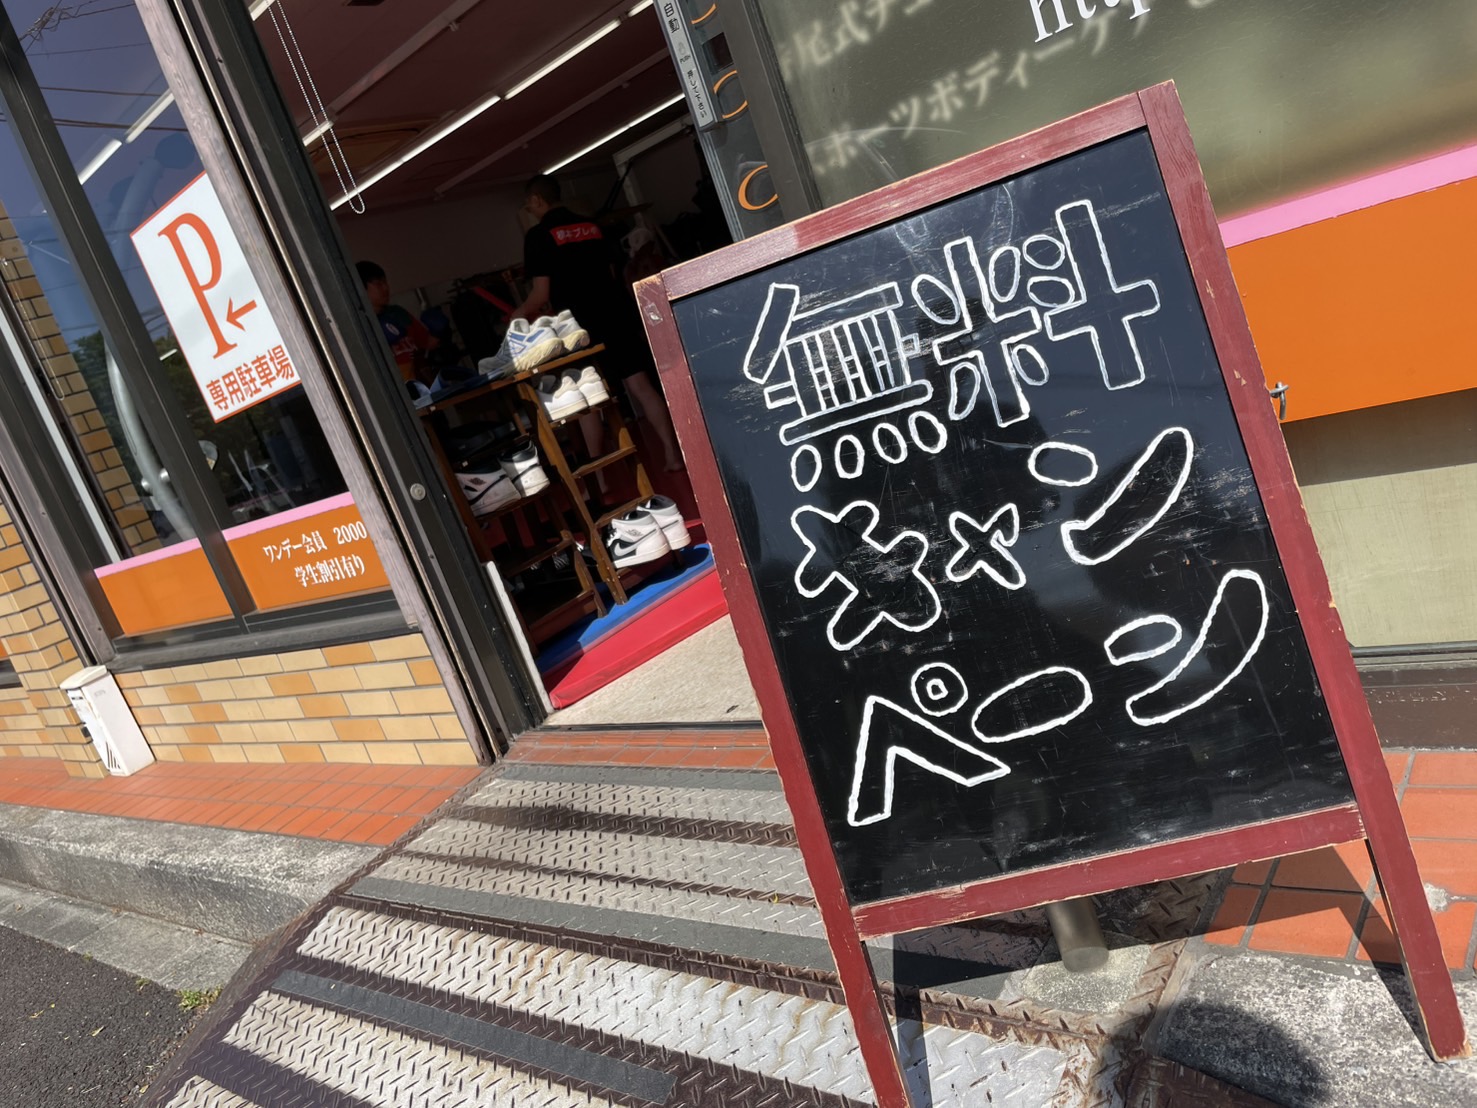 P
←
専用駐車場
ワンデー会員 2000
学生割引有り
自動
押してください
スポーツボディーケア
http
無料
キャン
ペーン